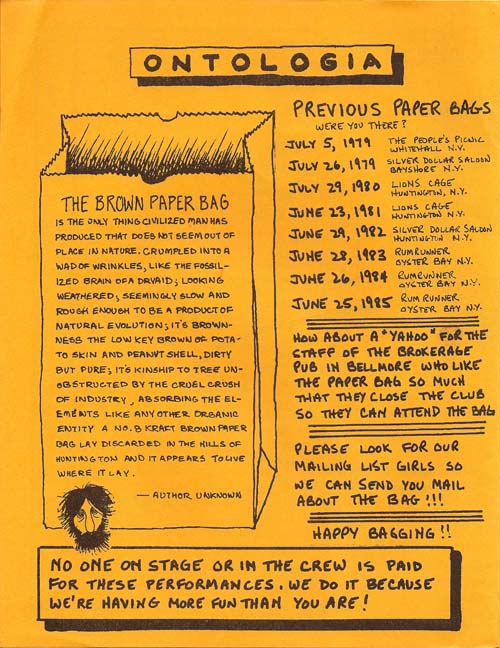 ONTOLOGIA
THE BROWN PAPER BAG
IS THE ONLY THING CIVILIZED MAN HAS
PRODUCED THAT DOES NOT SEEM OUT OF
PLACE IN NATURE. CRUMPLED INTO A
WAD OF WRINKLES, LIKE THE FOSSIL-
IZED BRAIN OF A DRYAID; LOOKING
WEATHERED; SEEMINGLY SLOW AND
ROUGH ENOUGH TO BE A PRODUCT OF
NATURAL EVOLUTION; IT'S BROWN-
NESS THE LOW KEY BROWN OF POTA-
TO SKIN AND PEANUT SHELL, DIRTY
BUT PURE; IT'S KINSHIP TO TREE UN-
OBSTRUCTED BY THE CRUEL CRUSH
OF INDUSTRY, ABSORBING THE EL-
EMENTS LIKE ANY OTHER ORGANIC
ENTITY A NO. 8 KRAFT BROWN PAPER
BAG LAY DISCARDED IN THE HILLS OF
HUNTINGTON AND IT APPEARS TO LIVE
WHERE IT LAY.
— AUTHOR UNKNOWN
PREVIOUS PAPER BAGS
WERE YOU THERE?
JULY 5, 1979 THE PEOPLE'S PICNIC
WHITEHALL N.Y.
JULY 26, 1979 SILVER DOLLAR SALOON
BAYSHORE N.Y.
JULY 29, 1980 LIONS CAGE
HUNTINGTON, N.Y.
JUNE 23, 1981 LIONS CAGE
HUNTINGTON N.Y.
JUNE 29, 1982 SILVER DOLLAR SALOON
HUNTINGTON N.Y.
JUNE 28, 1983 RUMRUNNER
OYSTER BAY N.Y.
JUNE 26, 1984 RUMRUNNER
OYSTER BAY N.Y.
JUNE 25, 1985 RUM RUNNER
OYSTER BAY N.Y.
HOW ABOUT A "YAHOO" FOR THE
STAFF OF THE BROKERAGE
PUB IN BELLMORE WHO LIKE
THE PAPER BAG SO MUCH
THAT THEY CLOSE THE CLUB
SO THEY CAN ATTEND THE BAG
PLEASE LOOK FOR OUR
MAILING LIST GIRLS SO
WE CAN SEND YOU MAIL
ABOUT THE BAG!!!
HAPPY BAGGING!!
NO ONE ON STAGE OR IN THE CREW IS PAID
FOR THESE PERFORMANCES. WE DO IT BECAUSE
WE'RE HAVING MORE FUN THAN YOU ARE!